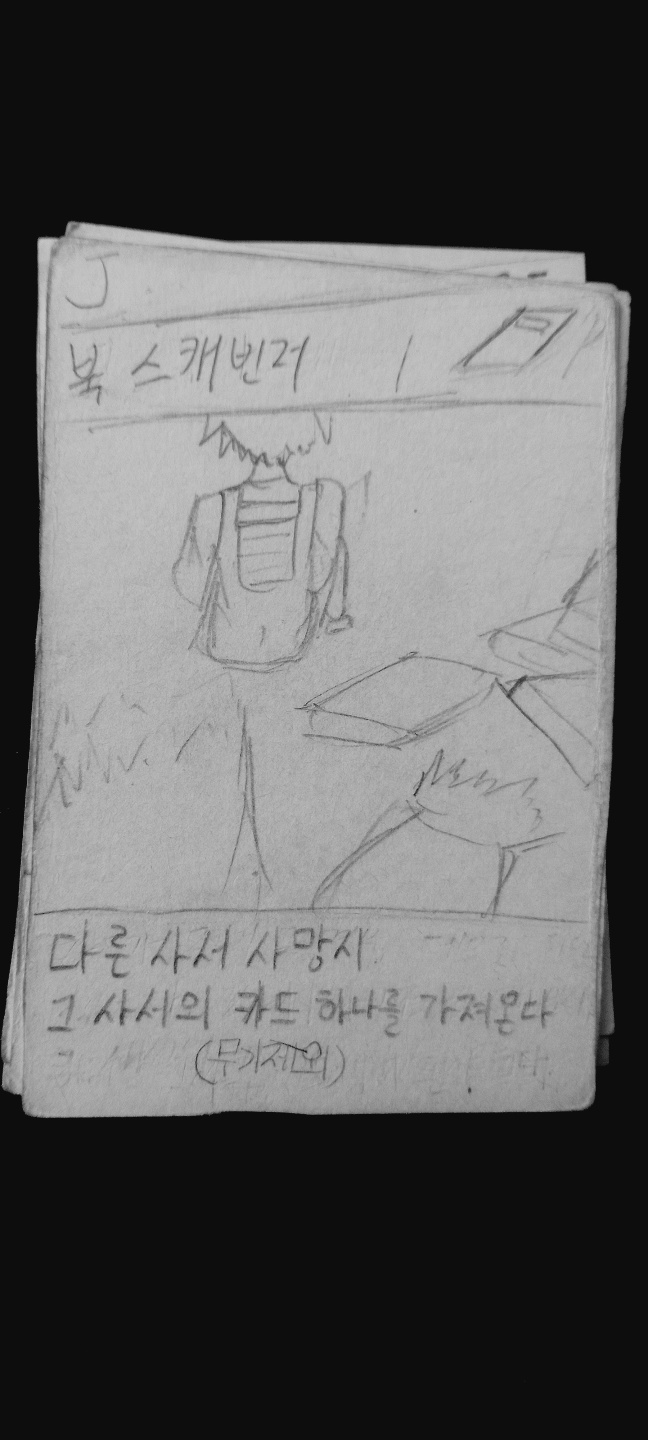 J
북 스캐빈저 1
다른 사서 사망시
그 사서의 카드 하나를 가져온다
(무기제외)